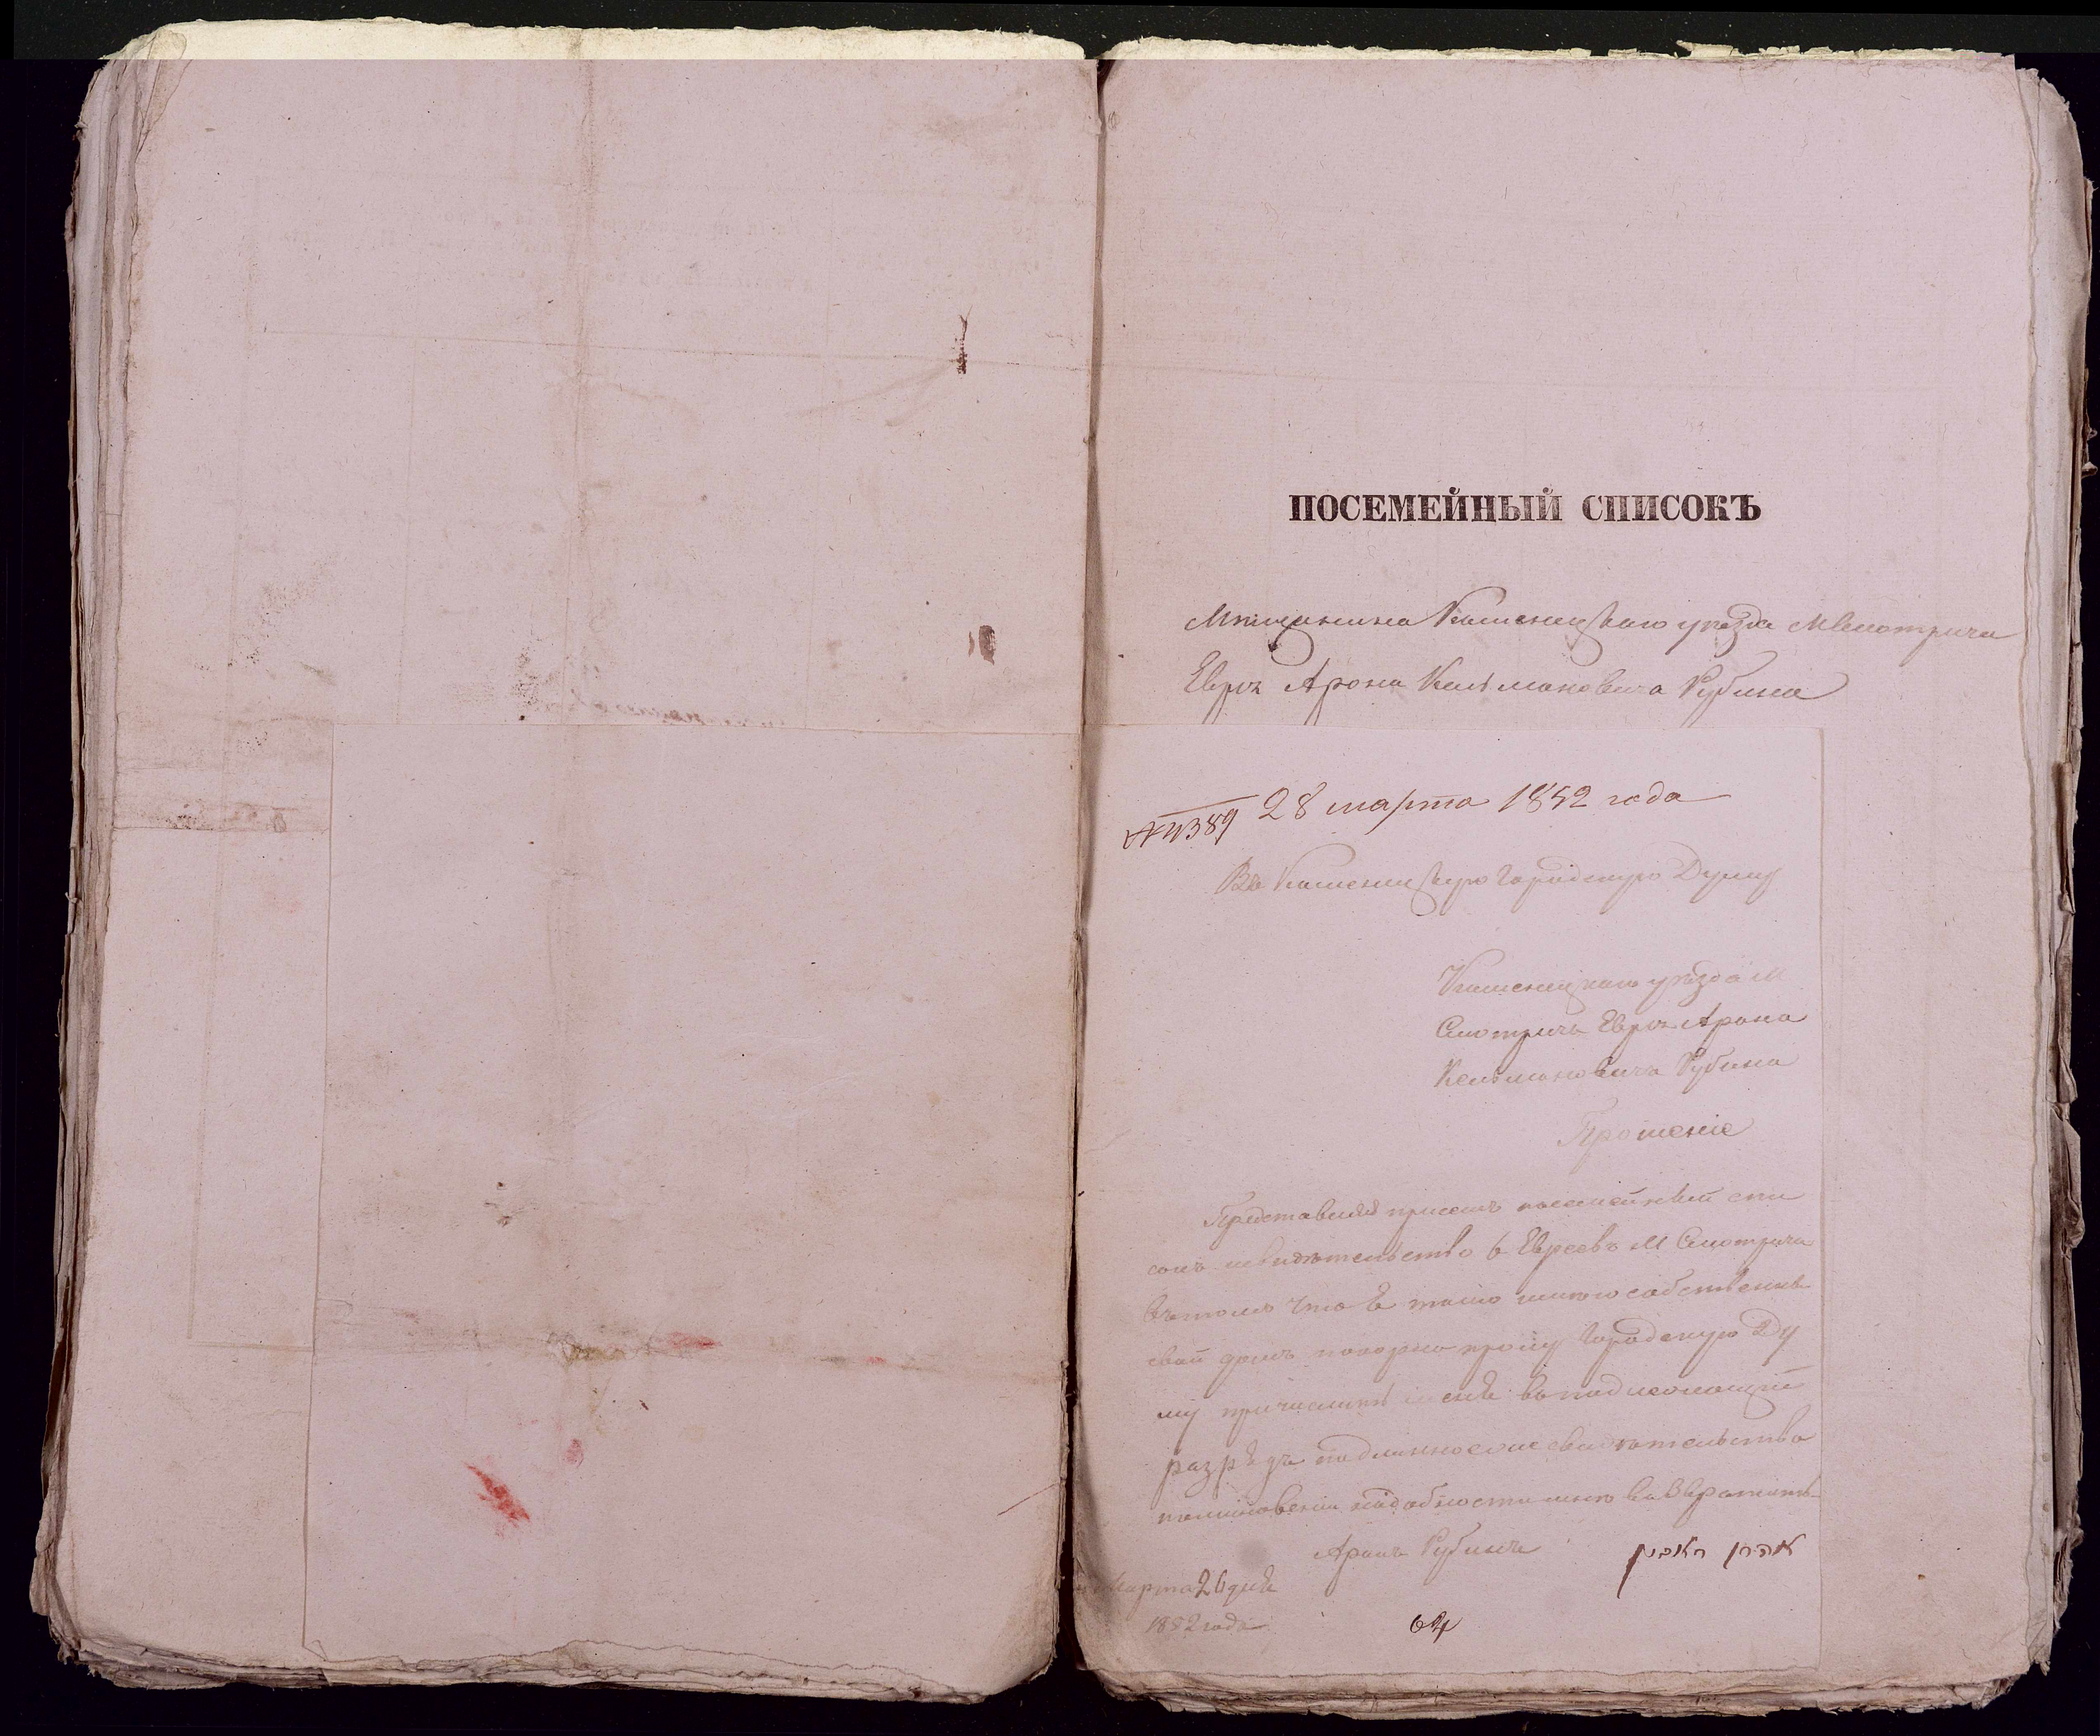 ПОСЕМЕЙНЫЙ СПИСОКЪ
Мѣщанина Каменецкаго уѣзда М Смотрича
Еврея Арона Кельмановича Рубина
28 марта 1852 года
№ 4389
Въ Каменецкую Городскую Думу
Каменецкаго уѣзда М
Смотрича Еврея Арона
Кельмановича Рубина
Прошеніе
Представляя присемъ посемейный спи
сокъ и свидѣтельство 6 Евреевъ М Смотрича
въ томъ что я имѣю собственный
свой домъ покорно прошу Городскую Ду
му причислить меня въ надлежащій
разрядъ подлинное же свидѣтельство
надобности мнѣ возвратить
Аронъ Рубинъ אהרן ראובין
Марта 26 дня
1852 года
64